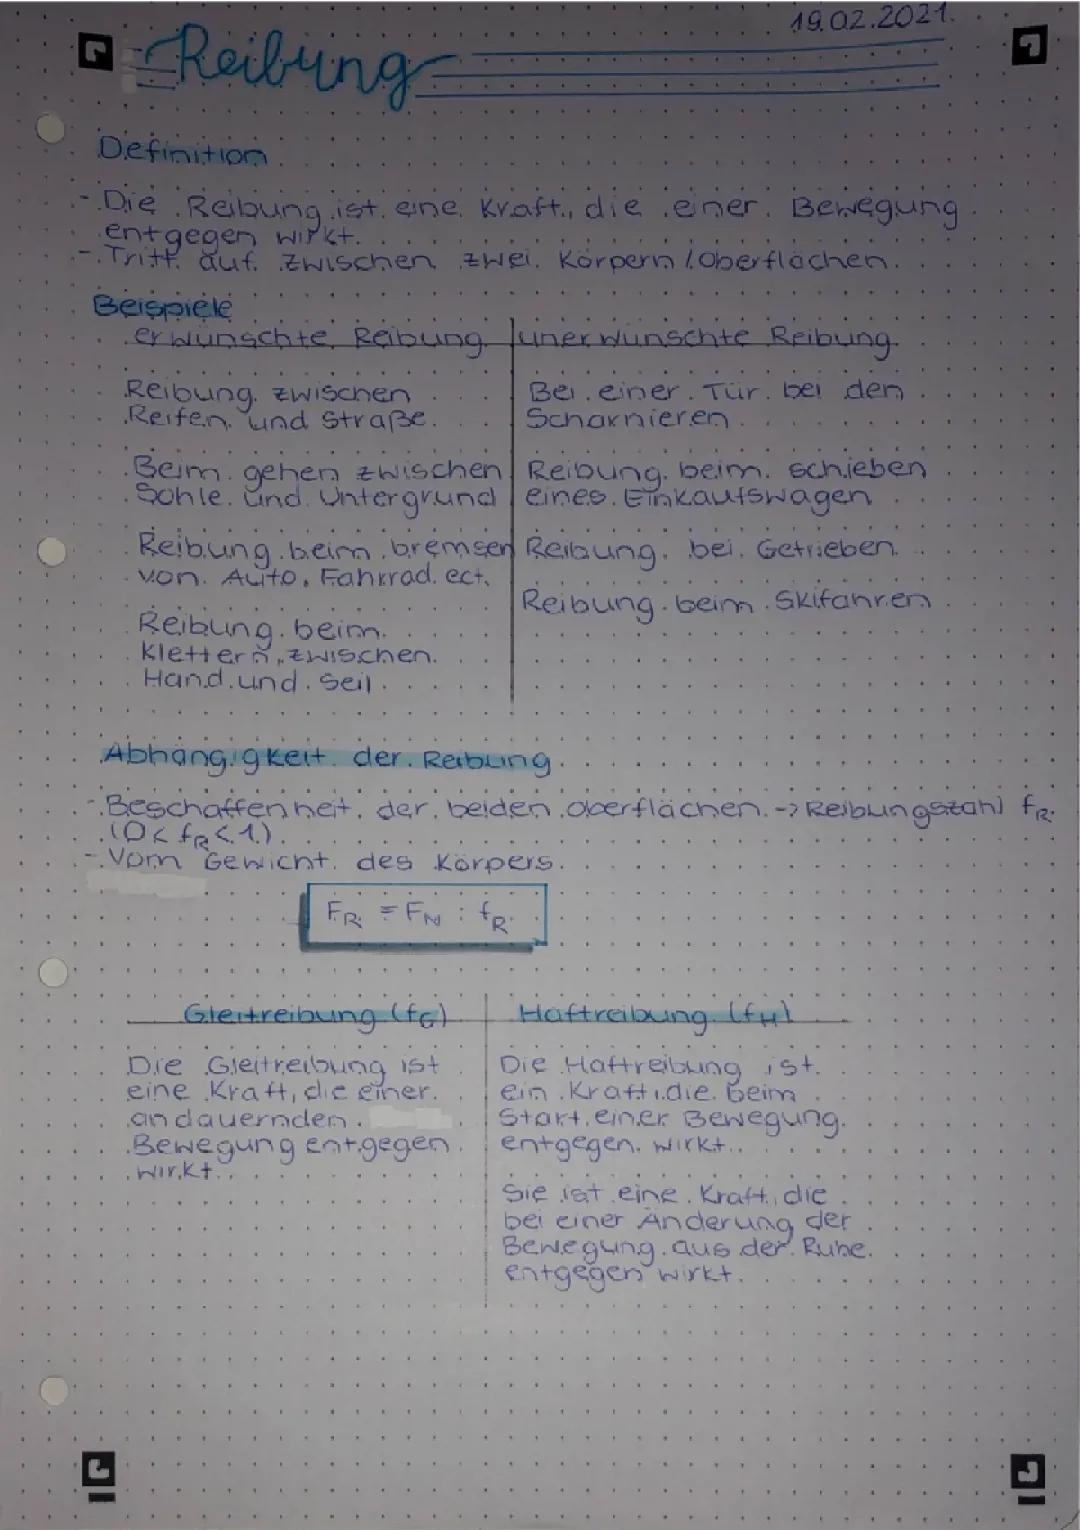 19.02.2021.
Reibung
Definition
- Die Reibung ist eine Kraft, die einer Bewegung
entgegen wirkt.
- Tritt auf zwischen zwei Körpern / Oberflächen.
Beispiele
erwünschte Reibung
Reibung zwischen
Reifen und Straße.
Beim gehen zwischen
Sohle und Untergrund
Reibung beim bremsen
von Auto, Fahrrad ect.
Reibung beim
Klettern, zwischen
Hand und Seil.
unerwünschte Reibung
Bei einer Tür bei den
Scharnieren
Reibung beim schieben
eines Einkaufswagen
Reibung bei Getrieben
Reibung beim Skifahren
Abhängigkeit der Reibung
- Beschaffenheit der beiden Oberflächen -> Reibungszahl fR
(0 < fR < 1)
- Vom Gewicht des Körpers.
FR = FN : fR
Gleitreibung (fG)
Die Gleitreibung ist
eine Kraft, die einer
andauernden
Bewegung entgegen
wirkt.
Haftreibung (fH)
Die Haftreibung ist
ein Kraft, die beim
Start einer Bewegung
entgegen wirkt.
Sie ist eine Kraft, die
bei einer Änderung der
Bewegung aus der Ruhe
entgegen wirkt.